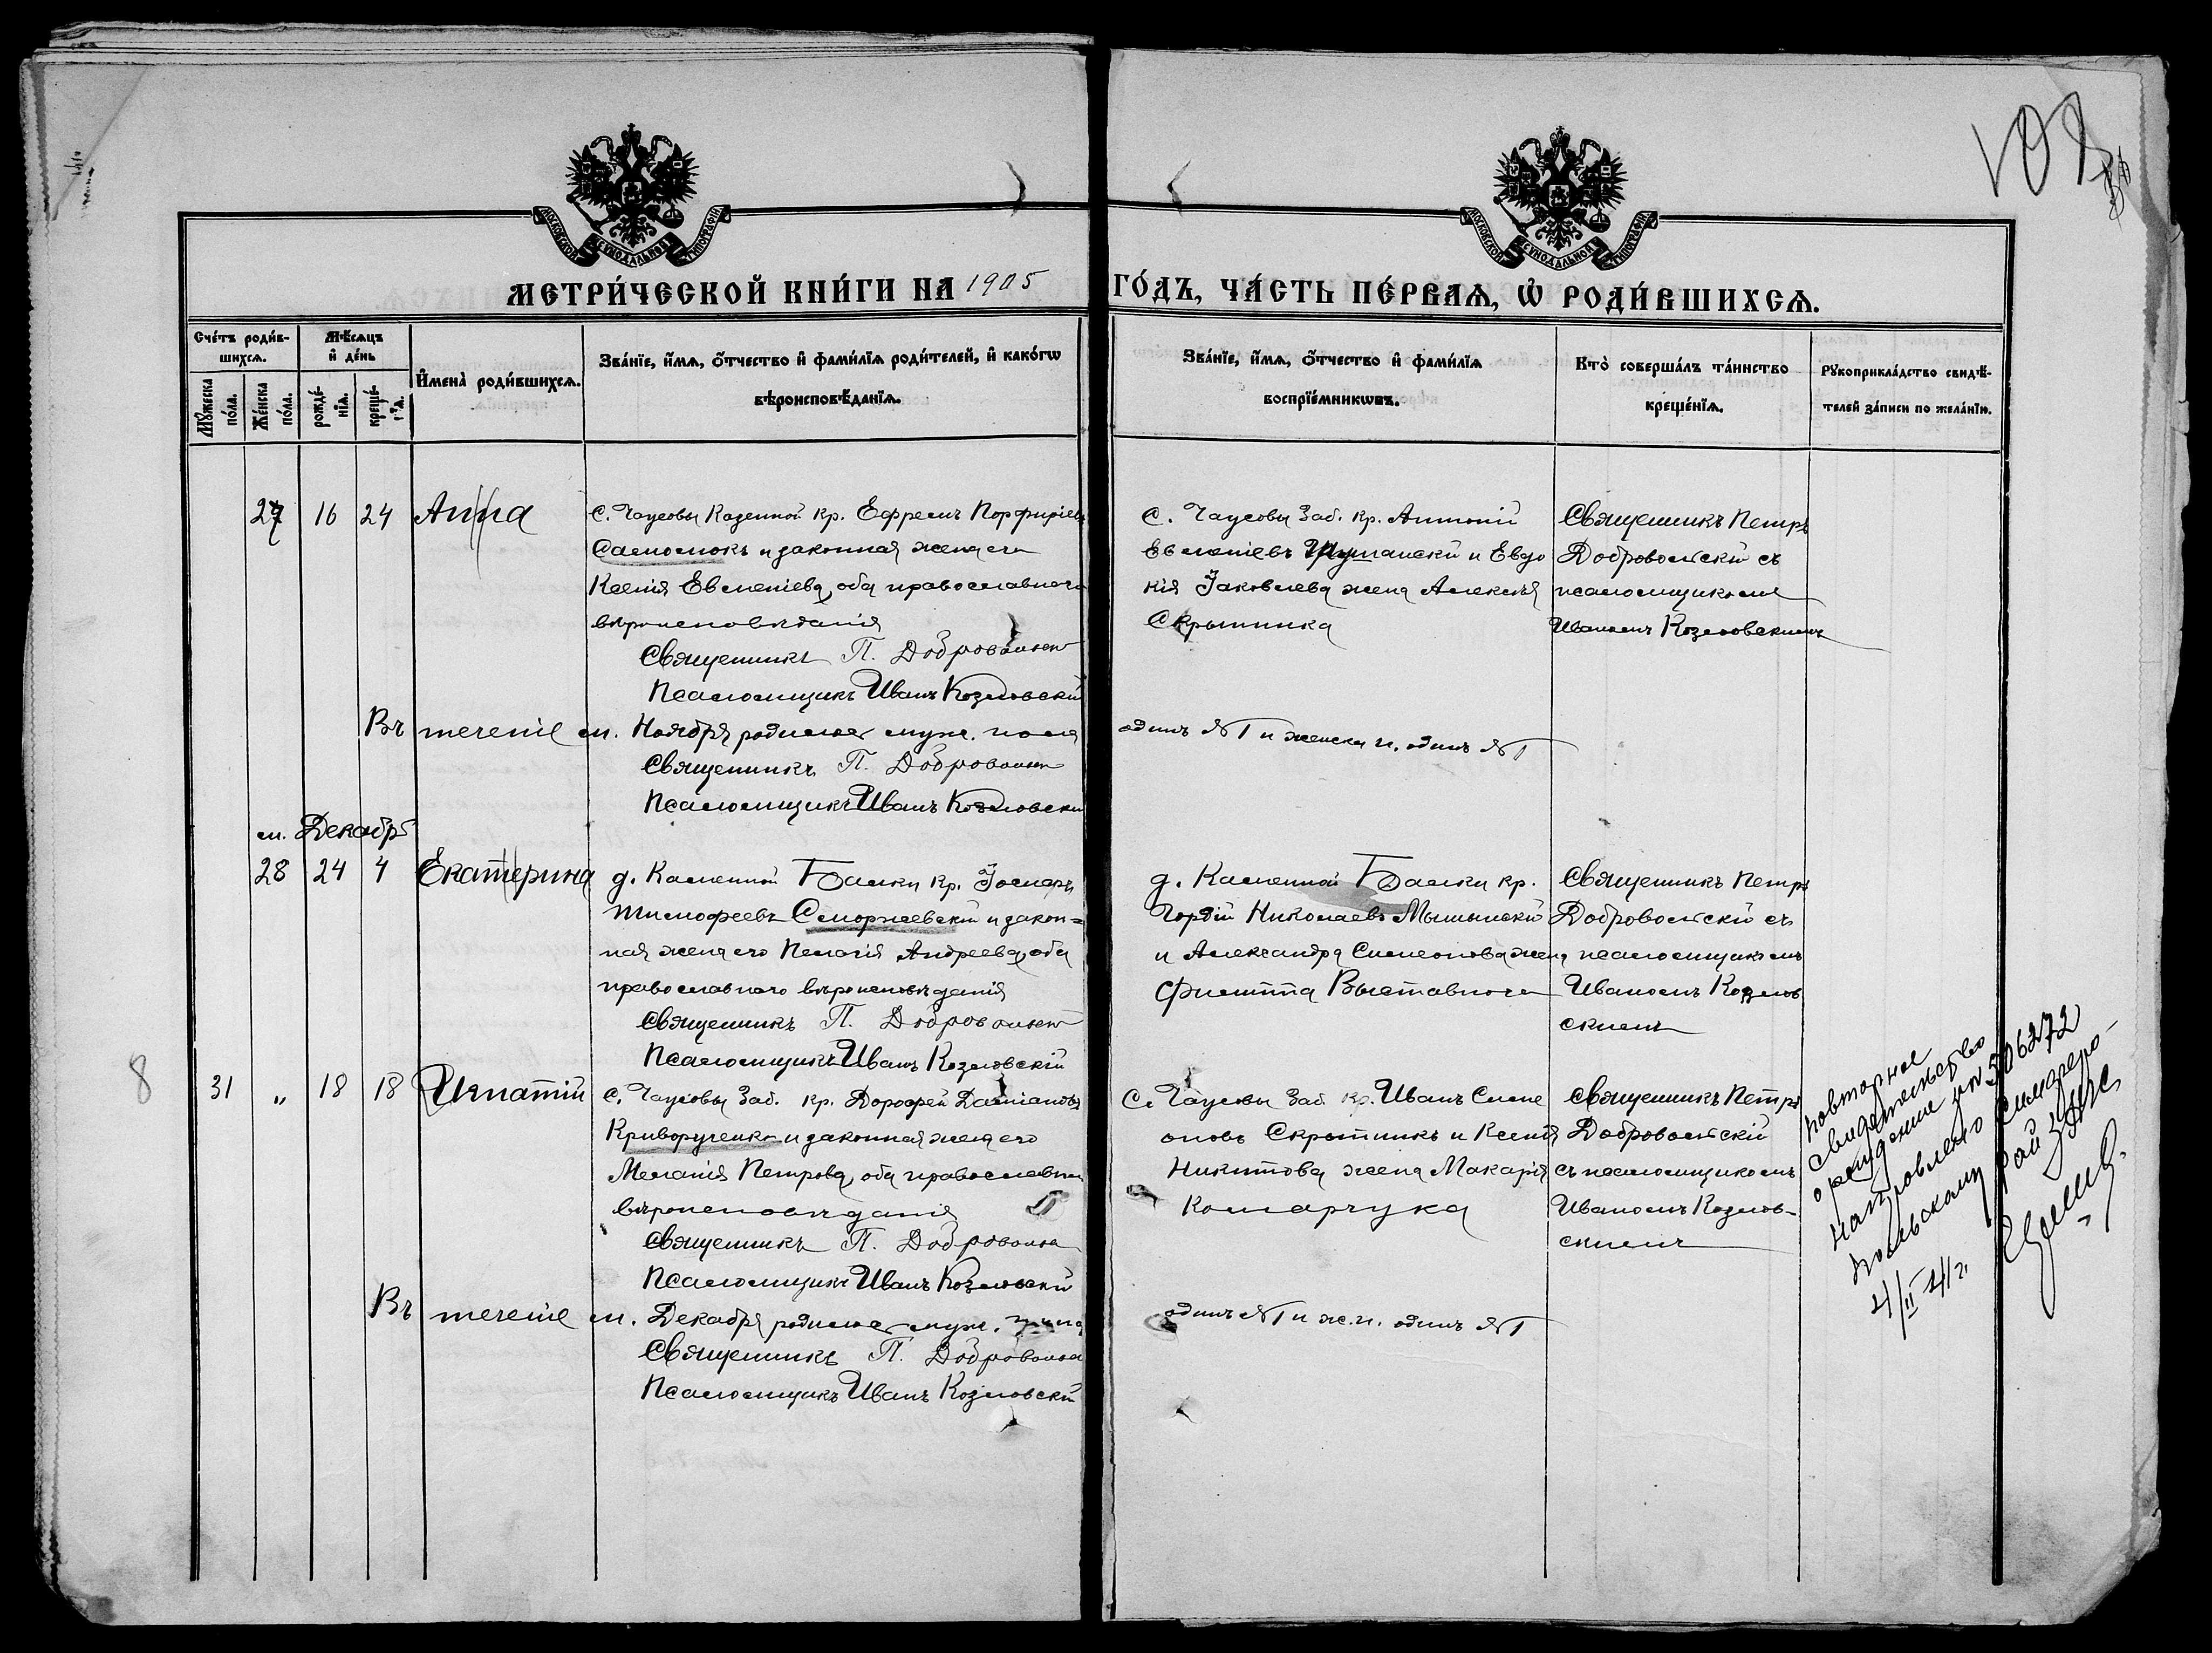 108
МОСКОВСКОЙ СѴНОДАЛЬНОЙ ТИПОГРАФІИ
МОСКОВСКОЙ СѴНОДАЛЬНОЙ ТИПОГРАФІИ
МЕТРИ́ЧЕСКОЙ КНИ́ГИ НА 1905 ГО́ДЪ, ЧА́СТЬ ПЕ́РВАѦ, Ѡ҆ РОДИ́ВШИХСѦ.
Сче́тъ роди́в-
шихсѧ.
Мꙋ́жеска по́ла.
Же́нска по́ла.
Мѣ́сѧцъ
и҆ де́нь
рожде́-
нїѧ.
креще́-
нїѧ.
И҆мена̀ роди́вшихсѧ.
Зва́нїе, и҆́мѧ, ѻ҆́тчество и҆ фами́лїѧ роди́телей, и҆ како́гѡ
вѣроисповѣ́данїѧ.
Зва́нїе, и҆́мѧ, ѻ҆́тчество и҆ фами́лїѧ
воспрїе́мникѡвъ.
Кто̀ соверша́лъ та́инство
креще́нїѧ.
Рꙋкоприкла́дство свидѣ́-
телей за́писи по жела́нїю.
27 16 24 Анна
с. Чаусовы Казенной кр. Ефремъ Порфиріевъ
Самолюкъ и законная жена его
Ксенія Евменіева, оба православнаго
вѣроисповѣданія
Священникъ П. Добровольск
Псаломщикъ Иванъ Козловскій
с. Чаусовы Заб. кр. Антоній
Евменіевъ и Евдо
кія Іаковлева жена Алексѣя
Скрытника
Священникъ Петръ
Добровольскій съ
псаломщикомъ
Иваномъ Козловскимъ
Въ теченіе м. Ноября родилось муж. пола одинъ №1 и женска п. одинъ №1
Священникъ П. Добровольск
Псаломщикъ Иванъ Козловскій
м. Декабрь
28 24 4 Екатерина
д. Каменной Балки кр.
Тимофеевъ Сморжевскій и закон=
ная жена его Пелагія Андреева, оба
православнаго вѣроисповѣданія
Священникъ П. Добровольск
Псаломщикъ Иванъ Козловскій
д. Каменной Балки кр.
Гордій Николаевъ и Александра Симеонова жена
Филиппа
Священникъ Петръ
Добровольскій съ
псаломщикомъ
Иваномъ Козлов
скимъ
8
31 „ 18 18 Игнатій
с. Чаусовы Заб. кр. Дорофей Даміановъ
Криворученко и законная жена его
Меланія Петрова, оба православна
вѣроисповѣданія
Священникъ П. Добровольск
Псаломщикъ Иванъ Козловскій
С. Чаусовы Заб. кр. Иванъ Симе
оновъ Скрытникъ и Ксенія
Никитова жена Макарія
Комарчука
Священникъ Петръ
Добровольскій
съ псаломщикомъ
Иваномъ Козлов-
скимъ
повторное
свидетельство
о рождении
направлено Симферо-
польскому рай ЗАГС
Въ теченіе м. Декабря родилось муж. пола одинъ №1 и ж. п. одинъ №1
Священникъ П. Добровольск
Псаломщикъ Иванъ Козловскій